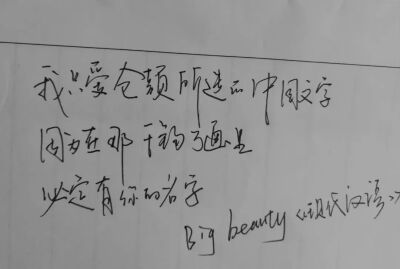 我只爱仓颉所造的中国文字
因为在那千钩了画里
必定有你的名字
Big beauty 《现代汉语》